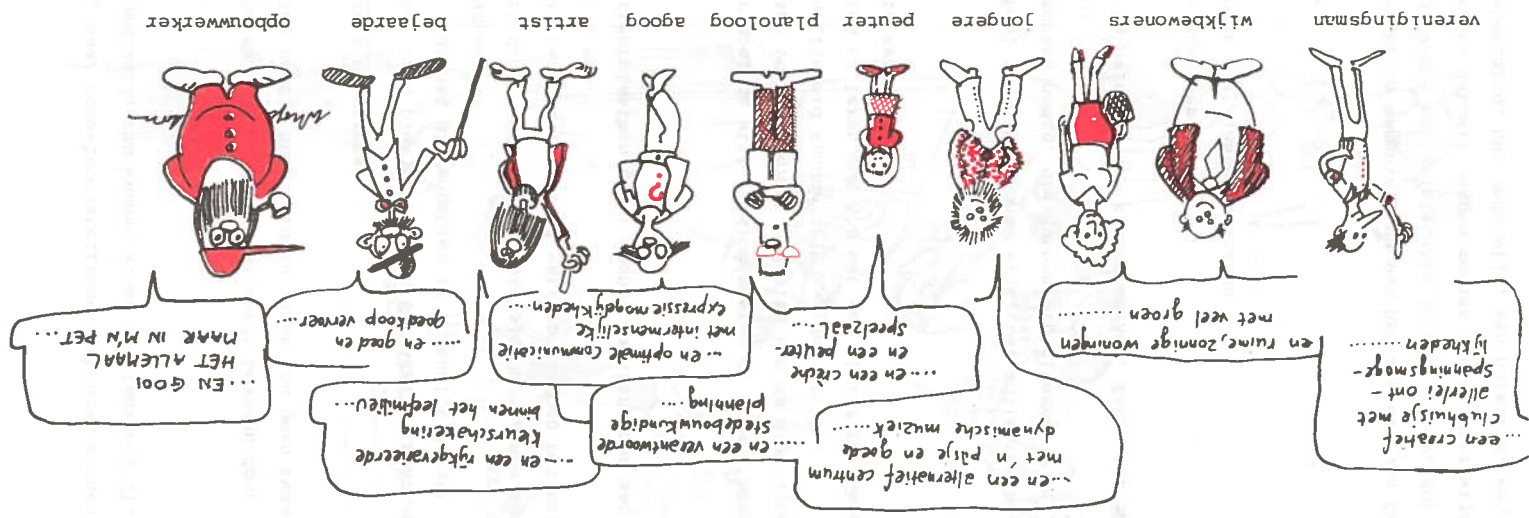 ...een creatief
clubhuisje met
allerlei ont-
spanningsmoge-
lijkheden.........
en ruime, zonnige woningen
met veel groen .......
...en een alternatief centrum
met 'n pilsje en goede
dynamische muziek.......
....en een crèche
en een peuter-
speelzaal.....
.....en een verantwoorde
stedebouwkundige
planning.....
...en optimale communicatie
met intermenselijke
expressie mogelijkheden....
....en een rijkgevarieerde
kleurschakering
binnen het leefmilieu...
.....en goed en
goedkoop vervoer...
....EN GOOI
HET ALLEMAAL
MAAR IN M'N PET....
verenigingsman wijkbewoners jongere peuter planoloog agoog artist bejaarde opbouwwerker